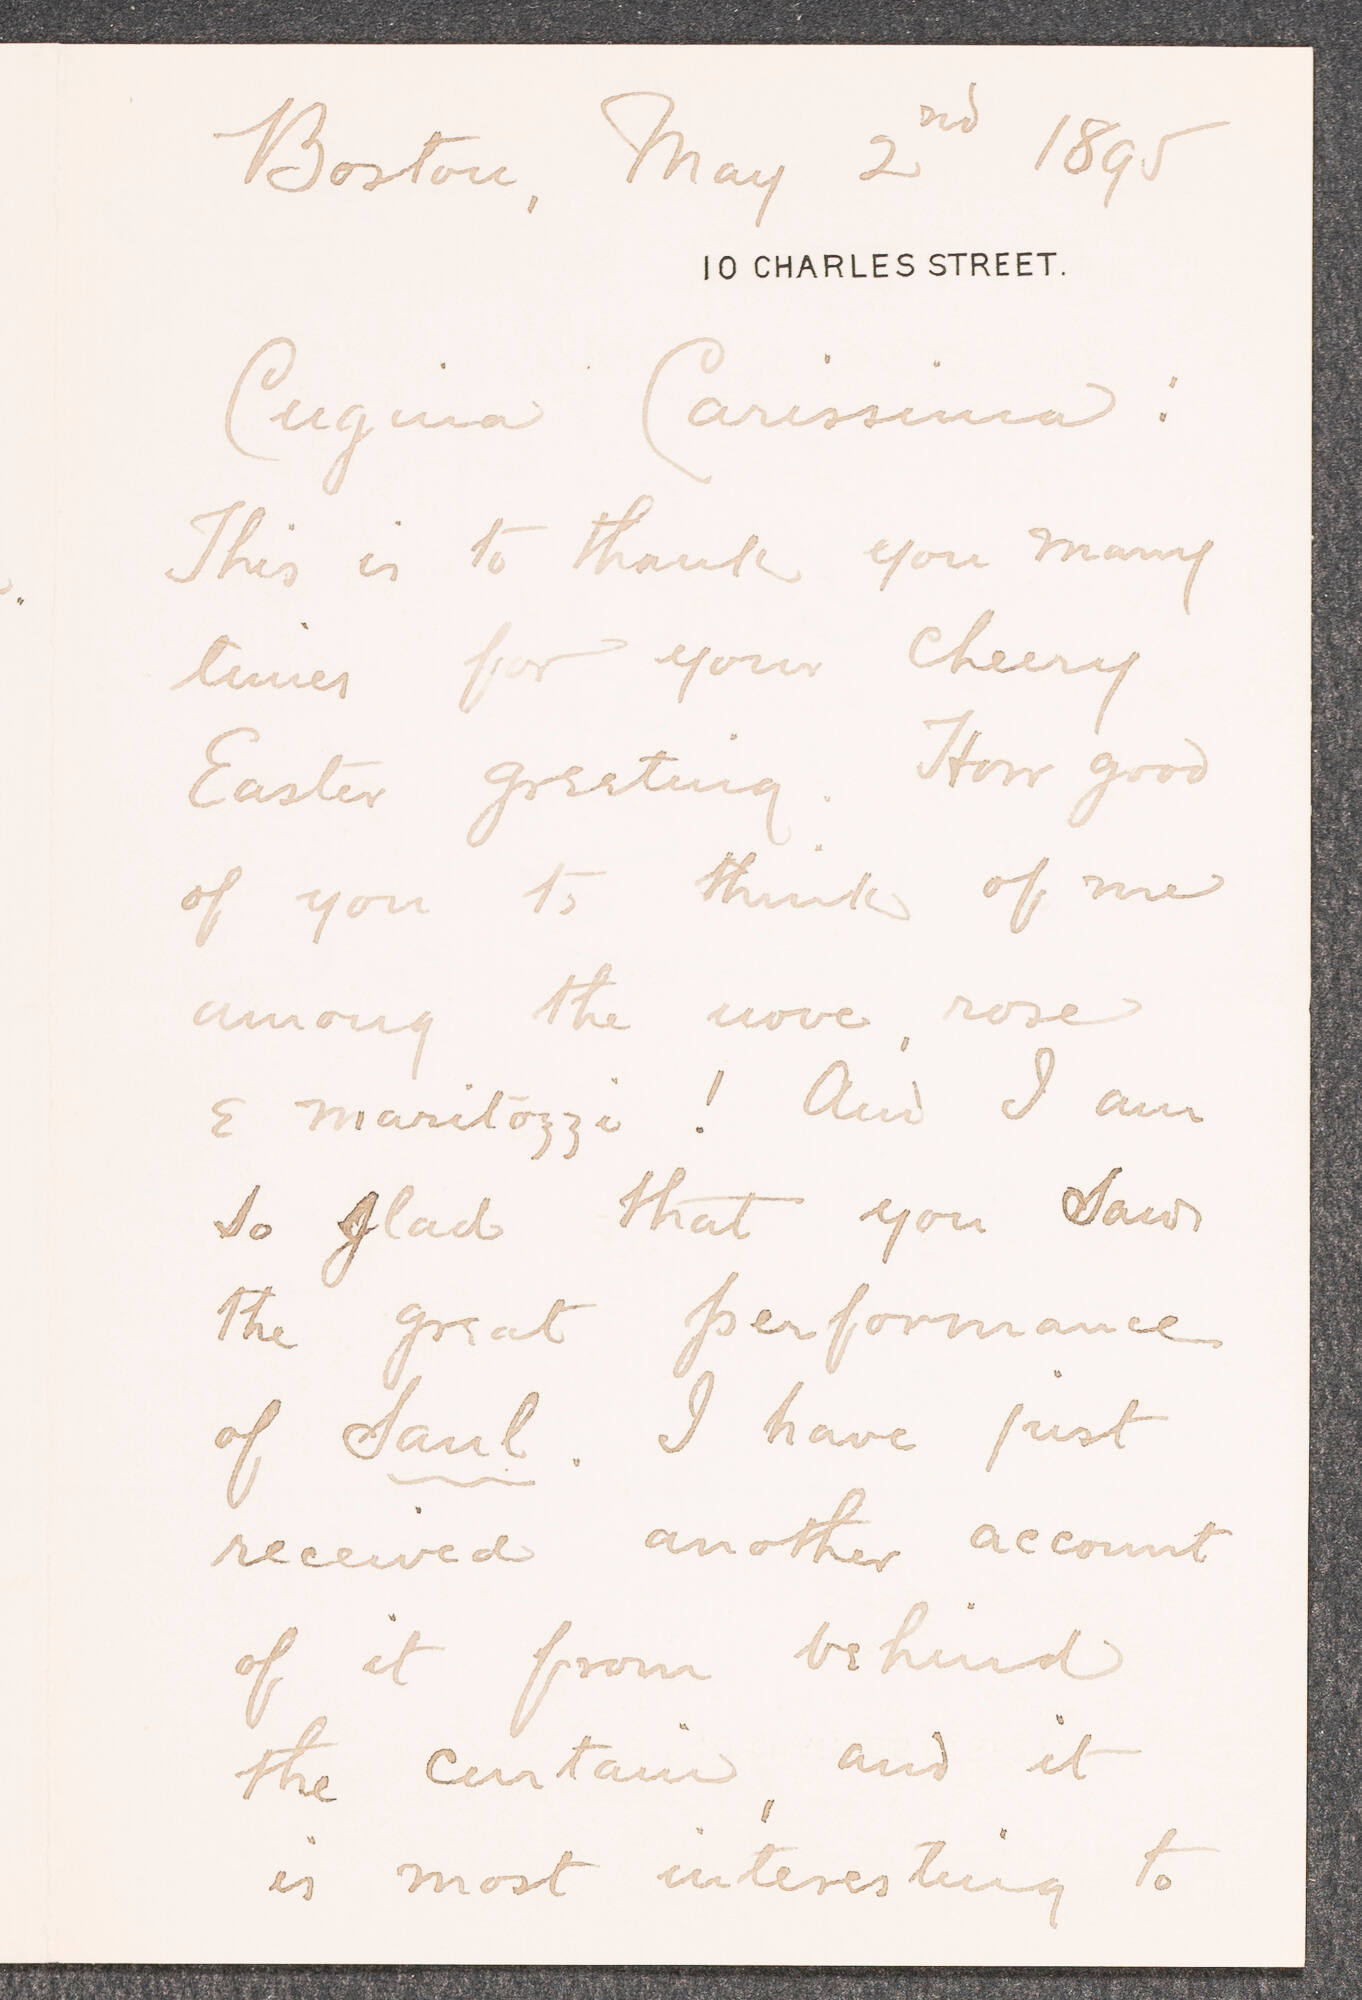 Boston, May 2nd 1895
10 CHARLES STREET.
Cugina Carissima:
This is to thank you many
times for your cheery
Easter greeting. How good
of you to think of me
among the uove, rose
e maritozzi! And I am
so glad that you saw
the great performance
of Saul. I have just
received another account
of it from behind
the curtain, and it
is most interesting to